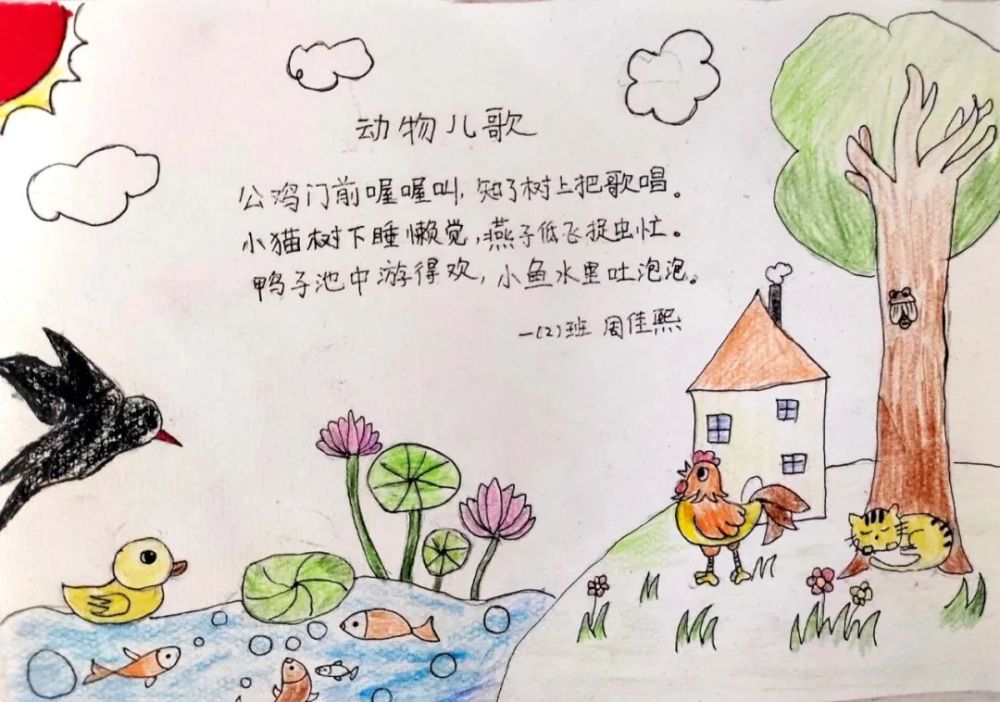 动物儿歌
公鸡门前喔喔叫，知了树上把歌唱。
小猫树下睡懒觉，燕子低飞捉虫忙。
鸭子池中游得欢，小鱼水里吐泡泡。
一(2)班 周佳熙